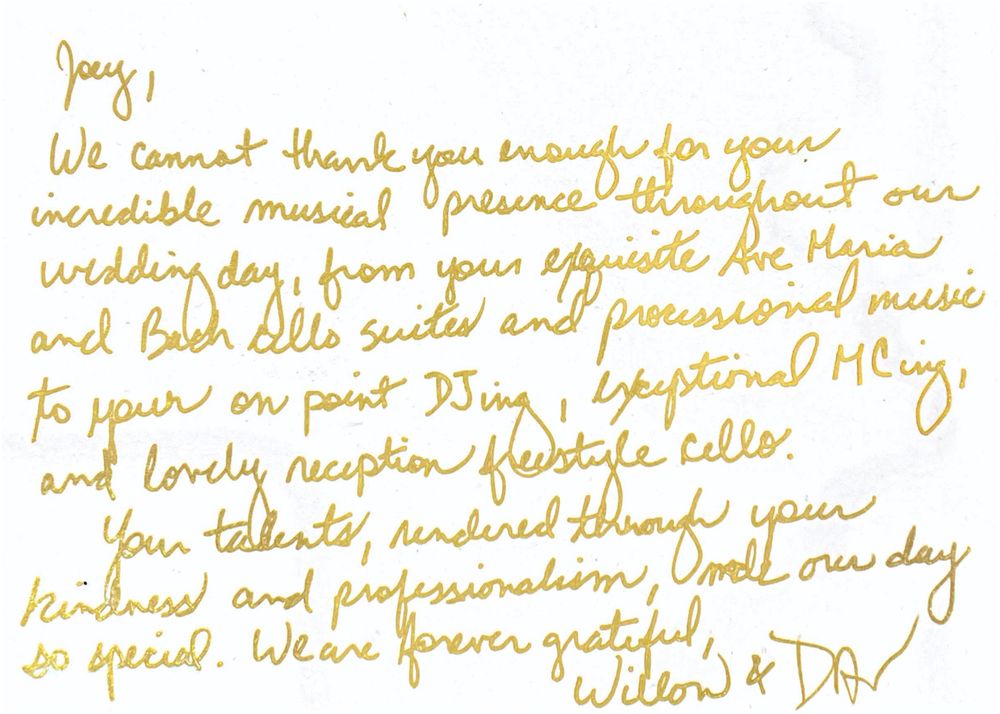 Joey,
We cannot thank you enough for your
incredible musical presence throughout our
wedding day, from your exquisite Ave Maria
and Bach cello suites and processional music
to your on point DJing, exceptional MCing,
and lovely reception freestyle cello.
Your talents, rendered through your
kindness and professionalism, made our day
so special. We are forever grateful,
Willow & DAV